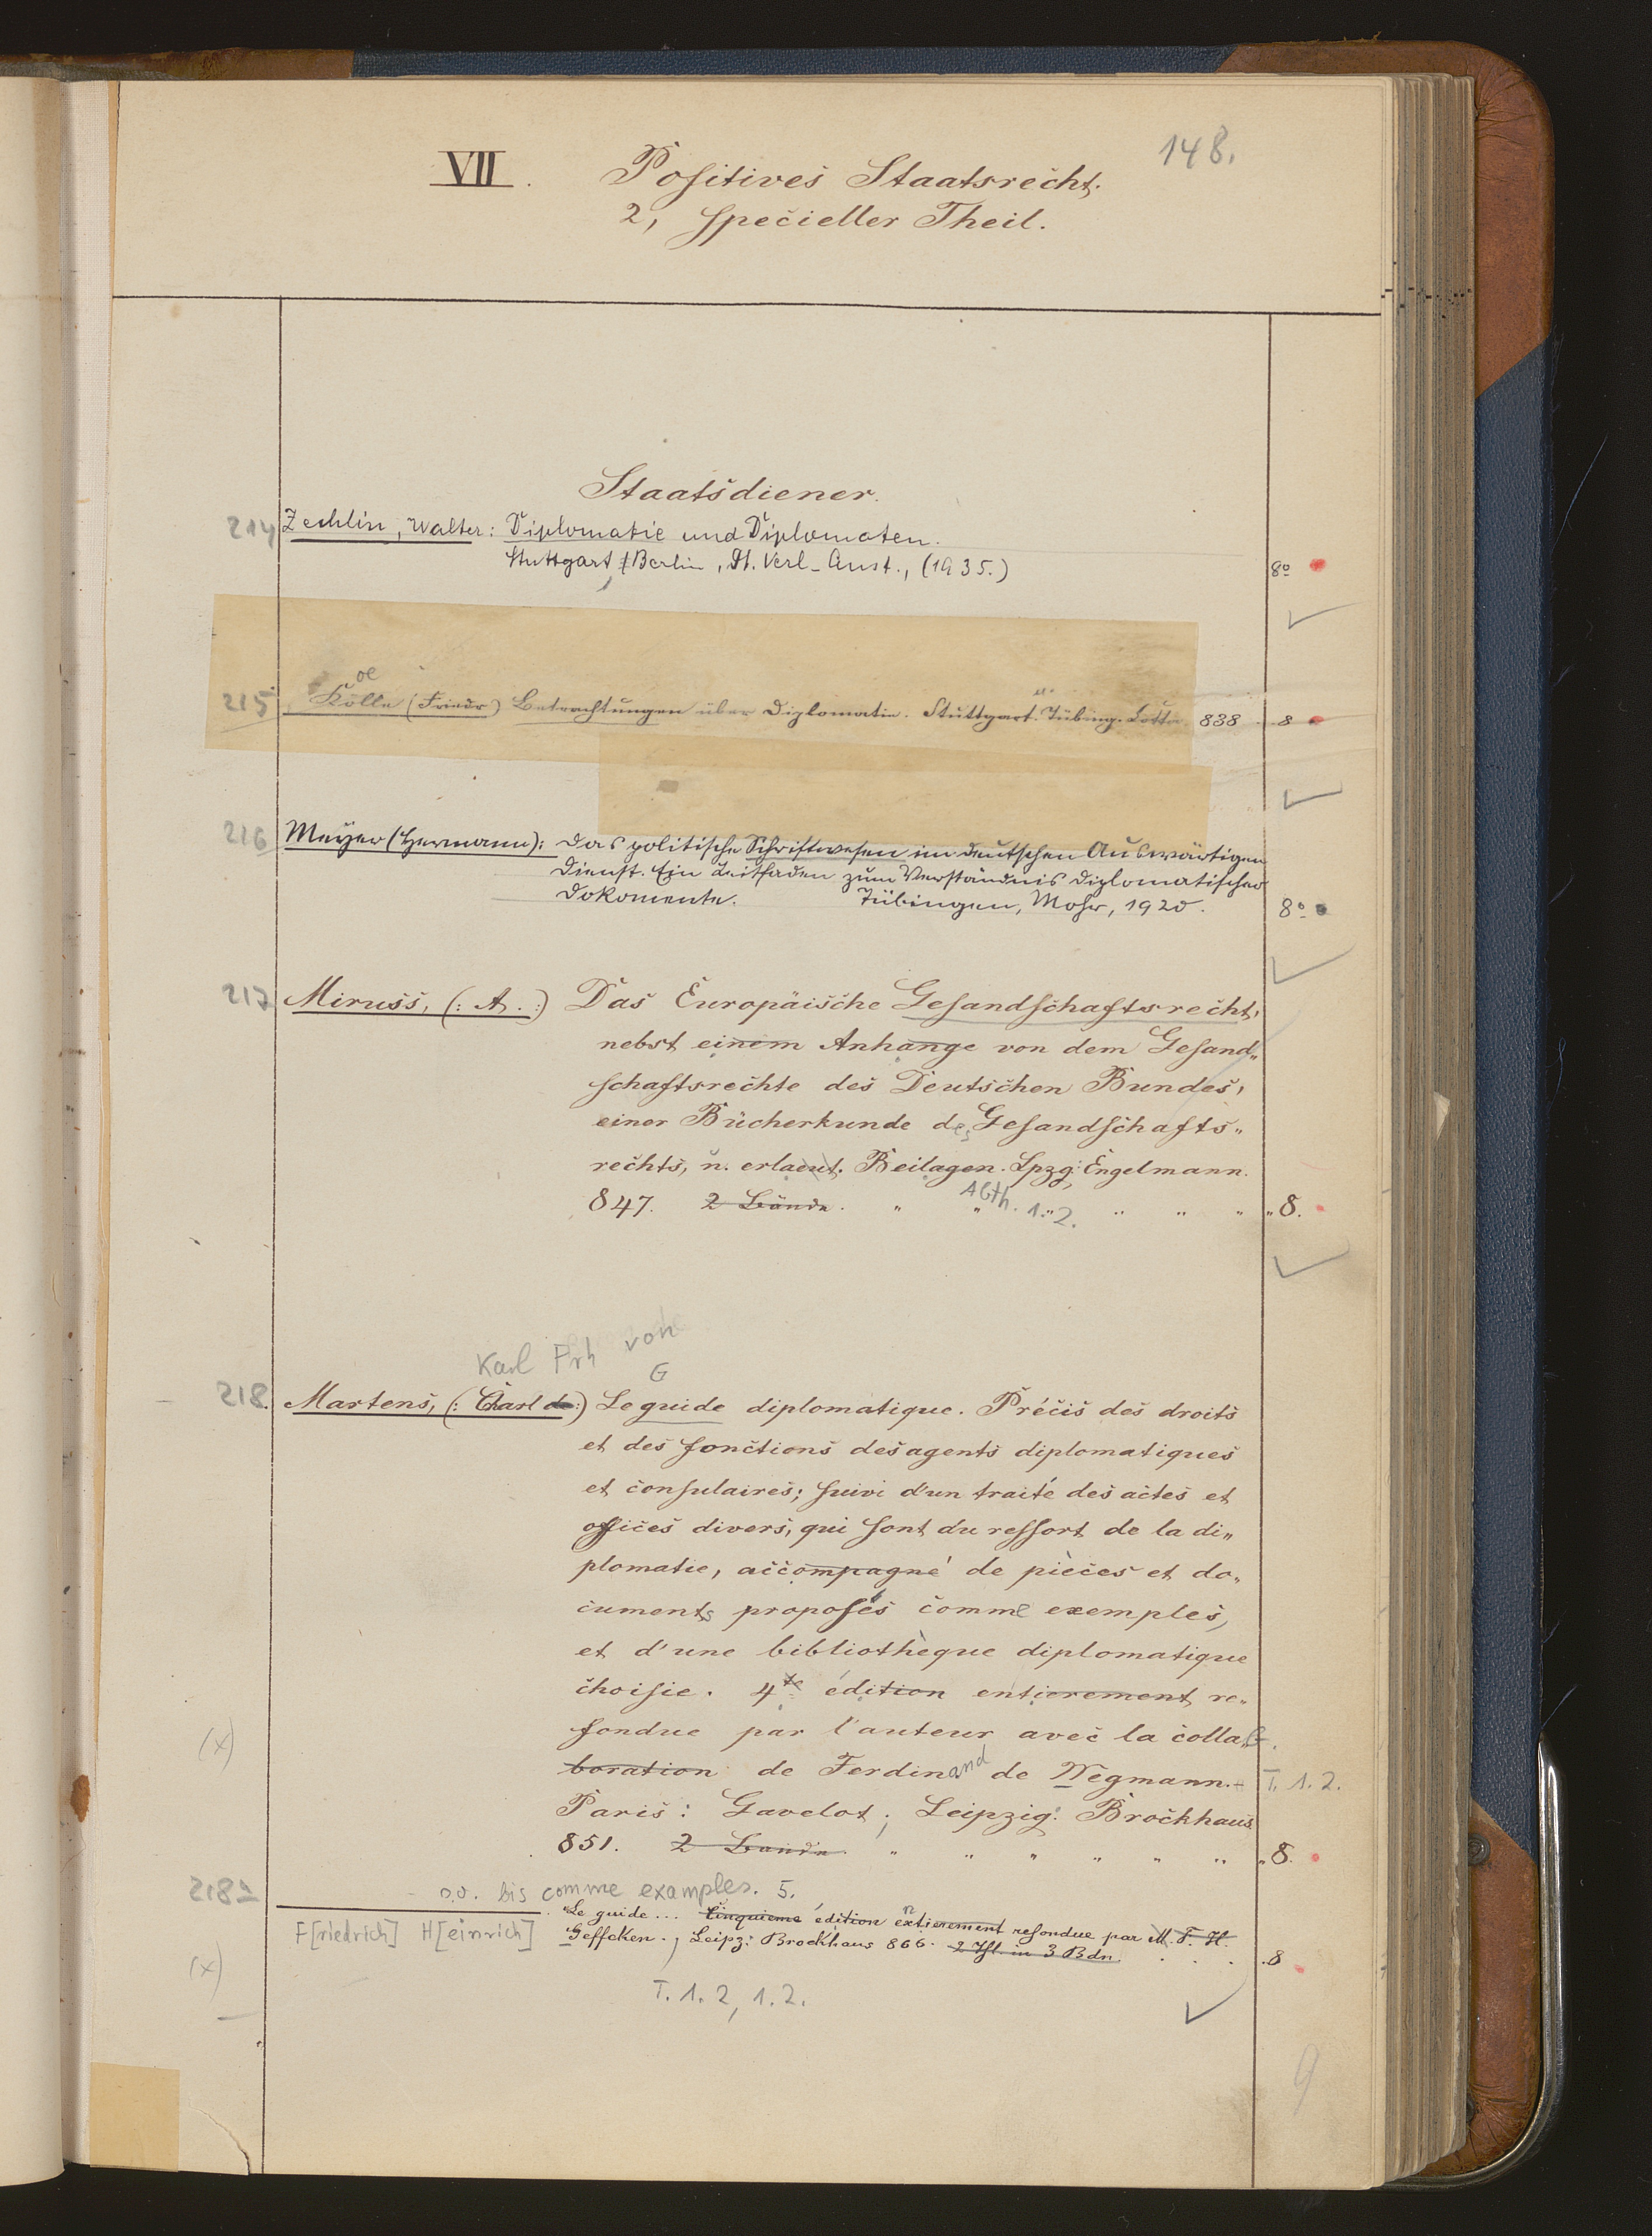 148.
VII. Positives Staatsrecht.
2, specieller Theil.
Staatsdiener.
214 Zechlin, Walter: Diplomatie und Diplomaten.
Stuttgart, Berlin, Dt. Verl.-Anst., (1935.) 8º
oe
215 Kölle (Friedr) Betrachtungen über Diplomatie. Stuttgart. u. Tübing. Cotta 838 8
216 Meyer (Hermann): Das politische Schriftwesen im deutschen Auswärtigen
Dienst. Ein Leitfaden zum Verständnis diplomatischer
Dokomente. Tübingen, Mohr, 1920. 8º
217 Miruss, (: A. :) Das Europäische Gesandschaftsrecht,
nebst einem Anhange von dem Gesand„
schaftsrechte des Deutschen Bundes,
einer Bücherkunde des Gesandschafts„
rechts, u. erlaeut. Beilagen. Lpzg: Engelmann.
847. 2 Bände. Abth. 1. 2. „ 8.
Karl Frh von
G
218. Martens, (: Charl de :) Le guide diplomatique. Précis des droits
et des fonctions des agents diplomatiques
et consulaires; suivi d'un traité des actes et
offices divers, qui sont du ressort de la di„
plomatie, accompagné de pièces et do„
cuments proposés comme exemples,
et d'une bibliothèque diplomatique
choisie. 4te édition entierement re„
(x) fondue par l'auteur avec la colla„
boration de Ferdinand de Wegmann. T. 1. 2.
Paris: Gavelot; Leipzig: Brockhaus
851. 2 Bände. „ 8.
218a o.d. bis comme examples. 5.
Le guide... Cinquieme édition entierement refondue par M. F. H.
F[riedrich] H[einrich] Geffcken., Leipz: Brockhaus 866. 2 Thl. in 3 Bdn. 8
(x)
T. 1. 2, 1. 2.
9